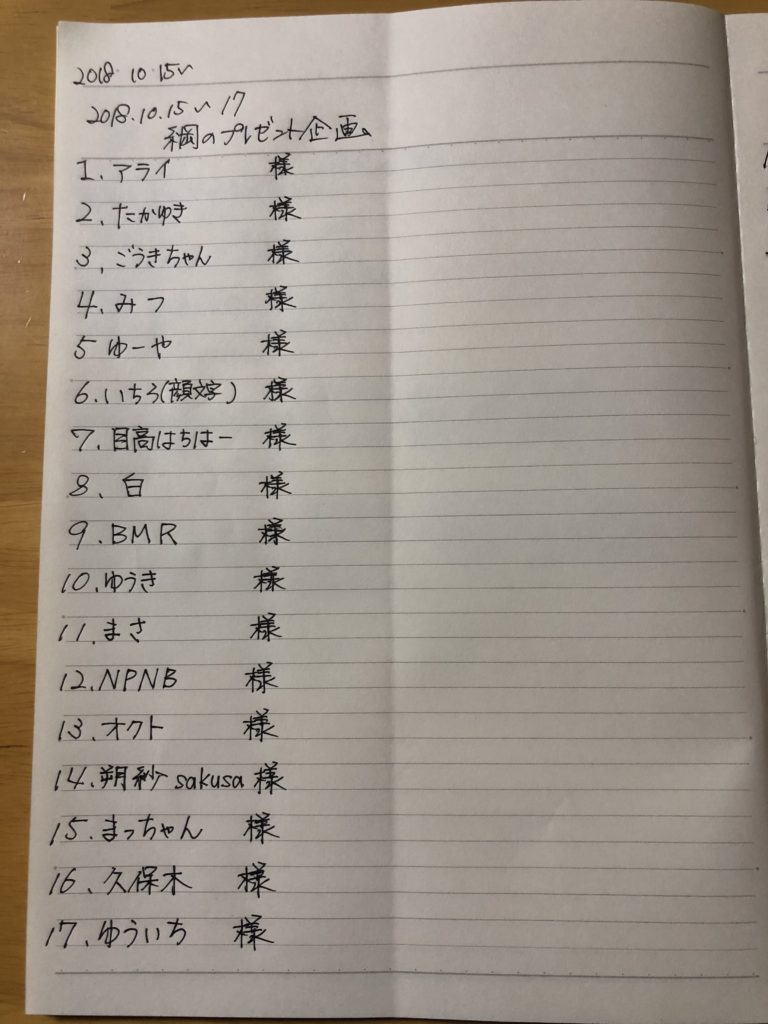 2018.10.15~
2018.10.15~17
綱のプレゼント企画。
1.アライ 様
2.たかゆき 様
3.ごうきちゃん 様
4.みつ 様
5 ゆーや 様
6.いちろ(顔文字) 様
7.目高はちはー 様
8.白 様
9.BMR 様
10.ゆうき 様
11.まさ 様
12.NPNB 様
13.オクト 様
14.朔紗 sakusa 様
15.まっちゃん 様
16.久保木 様
17.ゆういち 様